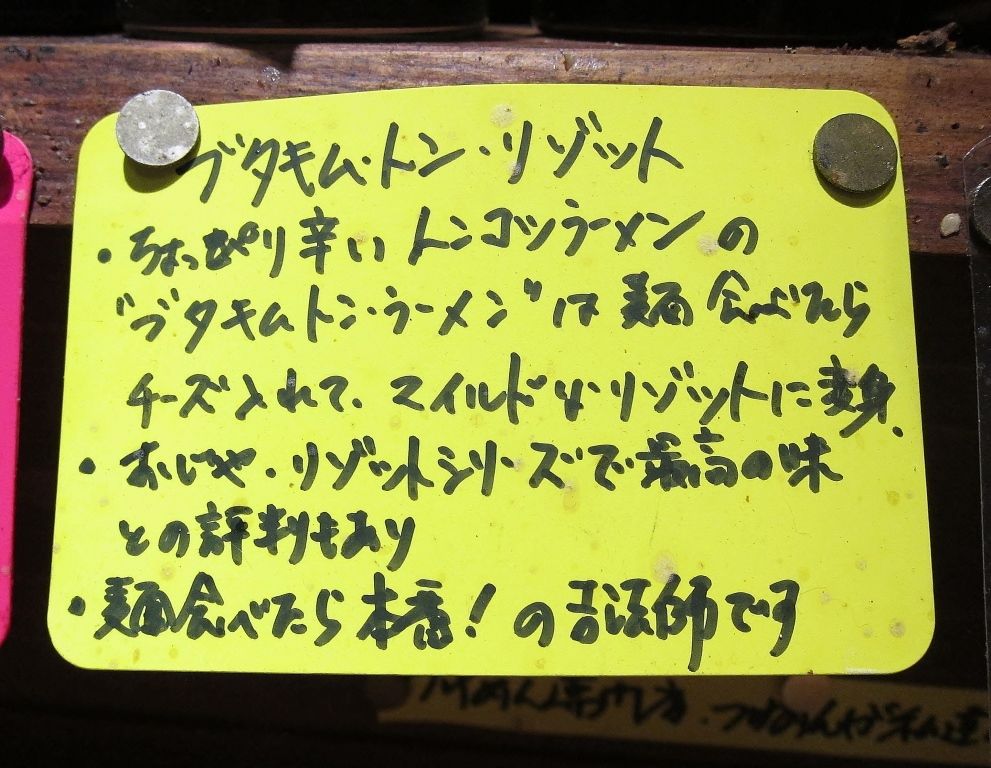 ブタキム・トン・リゾット
・ちょっぴり辛いトンコツラーメンの
"ブタキムトン・ラーメン"は麺食べたら
チーズ入れて、マイルドなリゾットに変身.
・おじや・リゾットシリーズで最高の味
との評判もあり
・麺食べたら本番!の
です